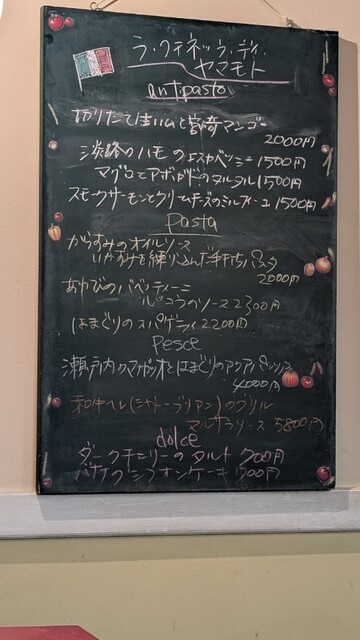 ラ・クチネッタ・ディ・
ヤマモト
antipasto
切りたて生ハムと宮崎マンゴー
2000円
淡路のハモのエスカベッシュ 1500円
マグロとアボカドのタルタル 1500円
スモークサーモンとクリームチーズのミルフィーユ 1500円
Pasta
からすみのオイルソース
いかすみを練り込んだ手打ちパスタ
2000円
あわびのバベッティーニ
ルッコラのソース 2300円
はまぐりのスパゲティ 2200円
Pesce
瀬戸内のマダイとはまぐりのアクアパッツァ
4000円
和牛ヘレ(シャトーブリアン)のグリル
マルサラソース 5800円
dolce
ダークチェリーのタルト 700円
バナナのシフォンケーキ 700円